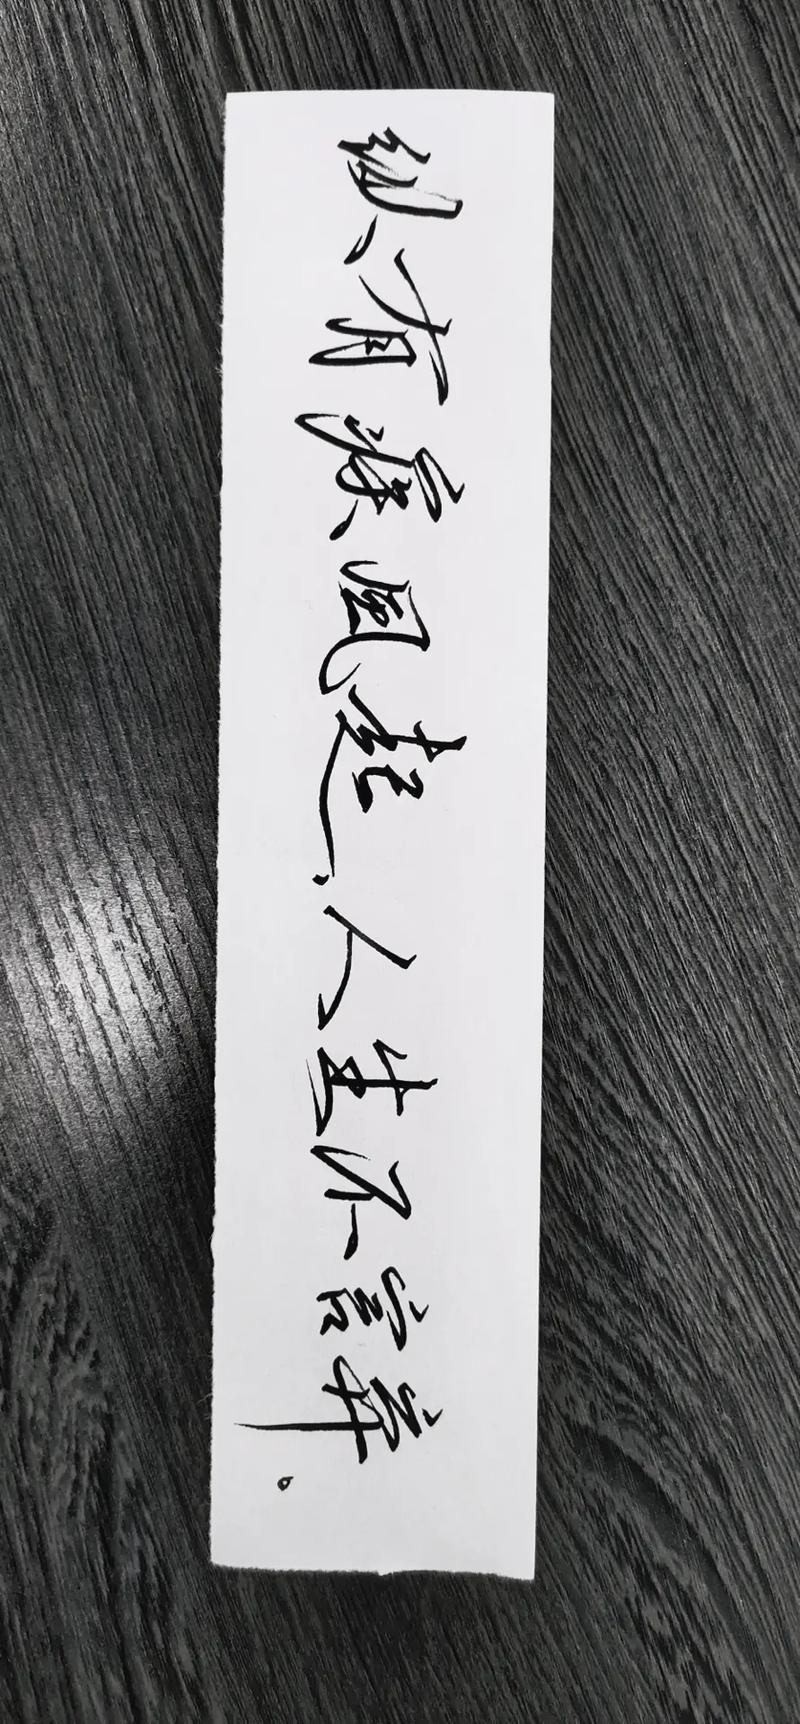 纵有疾风起、人生不言弃。